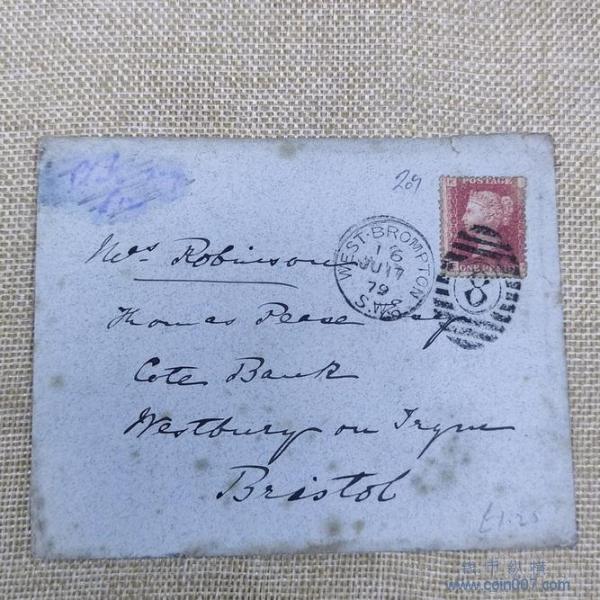 209
POSTAGE
ONE PENNY
WEST·BROMPTON
16
JU 17
79
S.W
8
Mrs Robinson
Thomas Pease Esq
Cote Bank
Westbury on Trym
Bristol
£1.25
钱币纵横
www.coin007.com